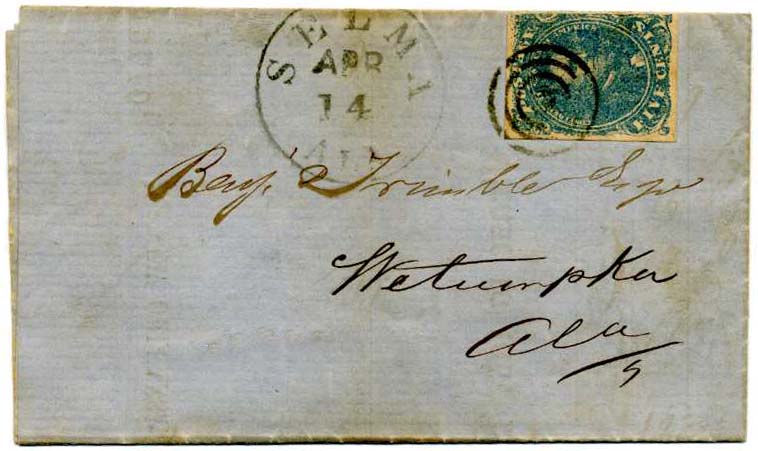 SELMA
APR
14
ALA
FIVE CENTS
Benj. Trimble Esqr
Wetumpka
Ala